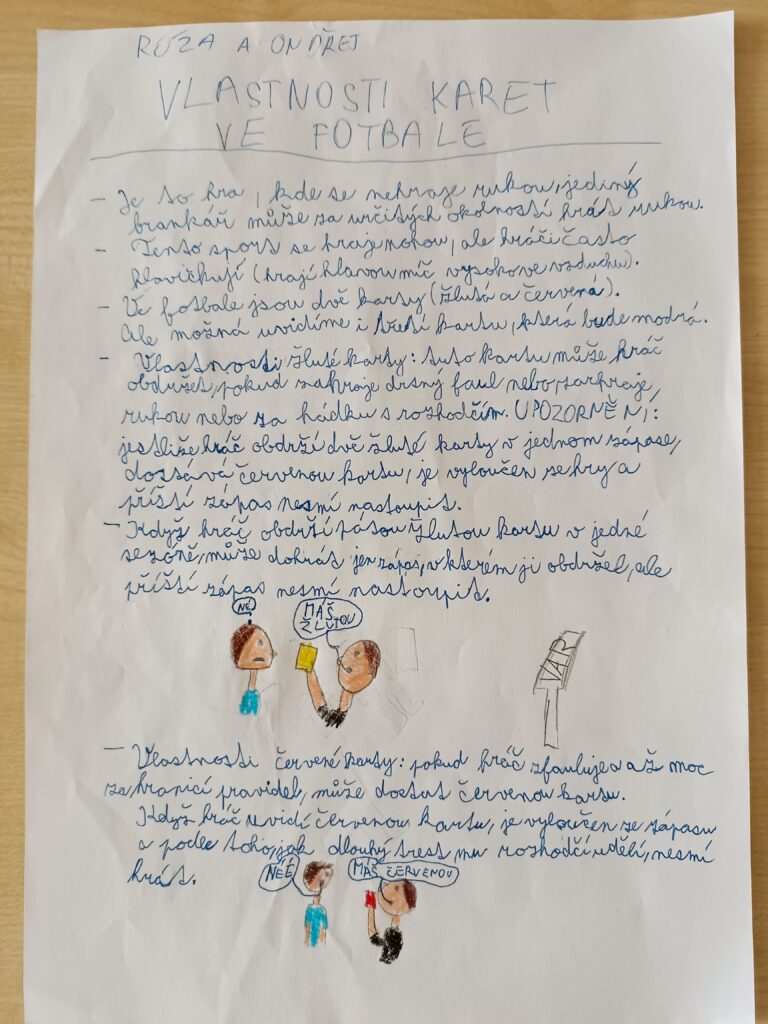 RÓZA A ONDŘEJ
VLASTNOSTI KARET
VE FOTBALE
– Je to hra, kde se nehraje rukou, jediný
brankář může za určitých okolností hrát rukou.
– Tento sport se hraje nohou, ale hráči často
hlavičkují (hrají hlavou míč vysoko ve vzduchu).
– Ve fotbale jsou dvě karty (žlutá a červená).
Ale možná uvidíme i třetí kartu, která bude modrá.
– Vlastnosti žluté karty: tuto kartu může hráč
obdržet, pokud zahraje drsný faul nebo zahraje
rukou nebo za hádku s rozhodčím. UPOZORNĚNÍ:
jestliže hráč obdrží dvě žluté karty v jednom zápase,
dostává červenou kartu, je vyloučen ze hry a
příští zápas nesmí nastoupit.
– Když hráč obdrží pátou žlutou kartu v jedné
sezóně, může dohrát jen zápas, v kterém ji obdržel, ale
příští zápas nesmí nastoupit.
NÉ
MÁŠ
ŽLUTOU
VAR
– Vlastnosti červené karty: pokud hráč zfauluje a až moc
za hranicí pravidel, může dostat červenou kartu.
Když hráč uvidí červenou kartu, je vyloučen ze zápasu
a podle toho, jak dlouhý trest mu rozhodčí udělí, nesmí
hrát.
NÉÉ
MÁŠ ČERVENOU